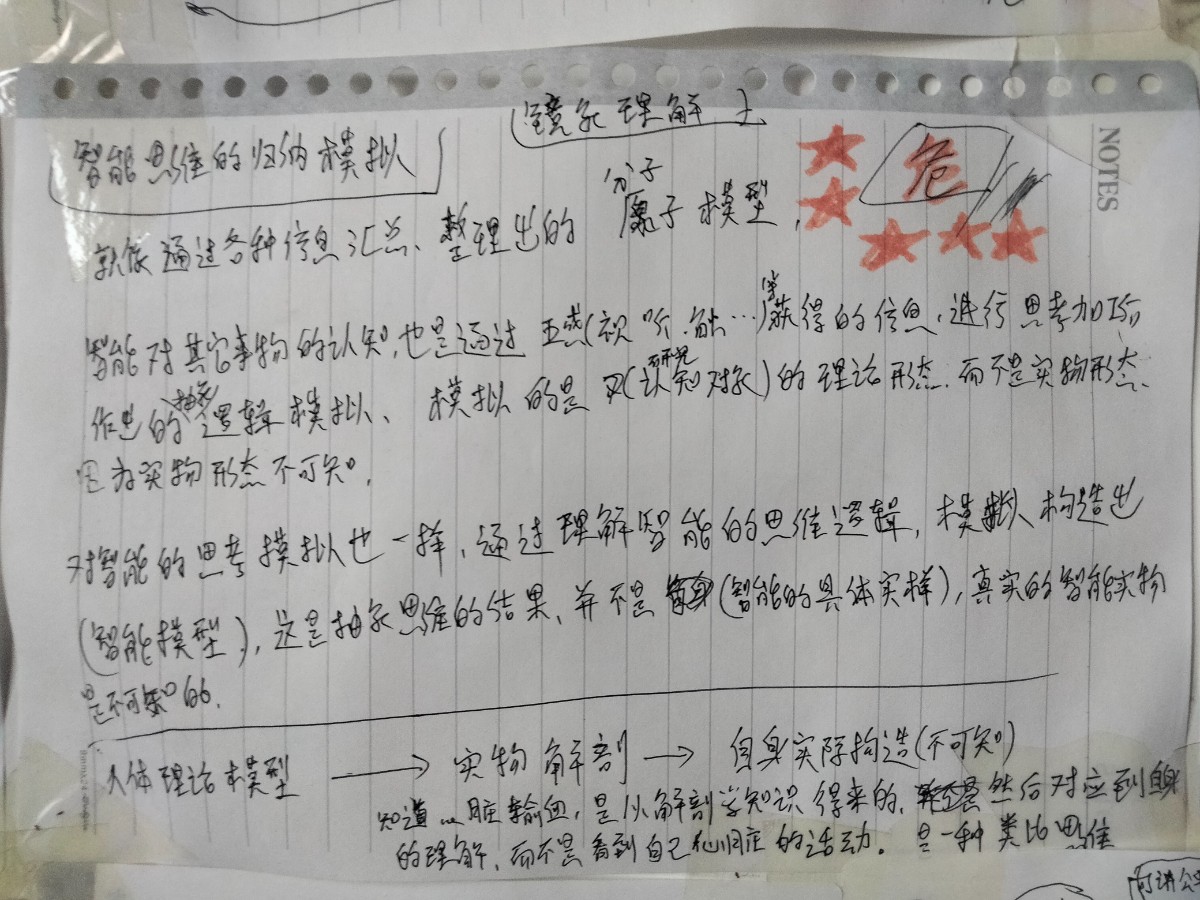 镜象理解 上
智能思维的归纳模拟
危
NOTES
分子
就像通过各种信息汇总、整理出的 原子模型,
等
智能对其它事物的认知,也是通过五感(视 听 触…)获得的信息,进行思考加工,
抽象 研究
作出的逻辑模拟、模拟的是 (认知对象)的理论形态.而不是实物形态、
因为实物形态不可知,
对智能的思考模拟也一样,通过理解智能的思维逻辑,模拟构造出
(智能模型),这是抽象思维的结果、并不是(智能的具体实样),真实的智能实物
是不可知的.
人体理论模型 → 实物解剖 → 自身实际构造(不可知)
知道心脏输血,是从解剖学知识得来的、然后对应到自身
的理解,而不是看到自己心脏的活动。是一种类比思维